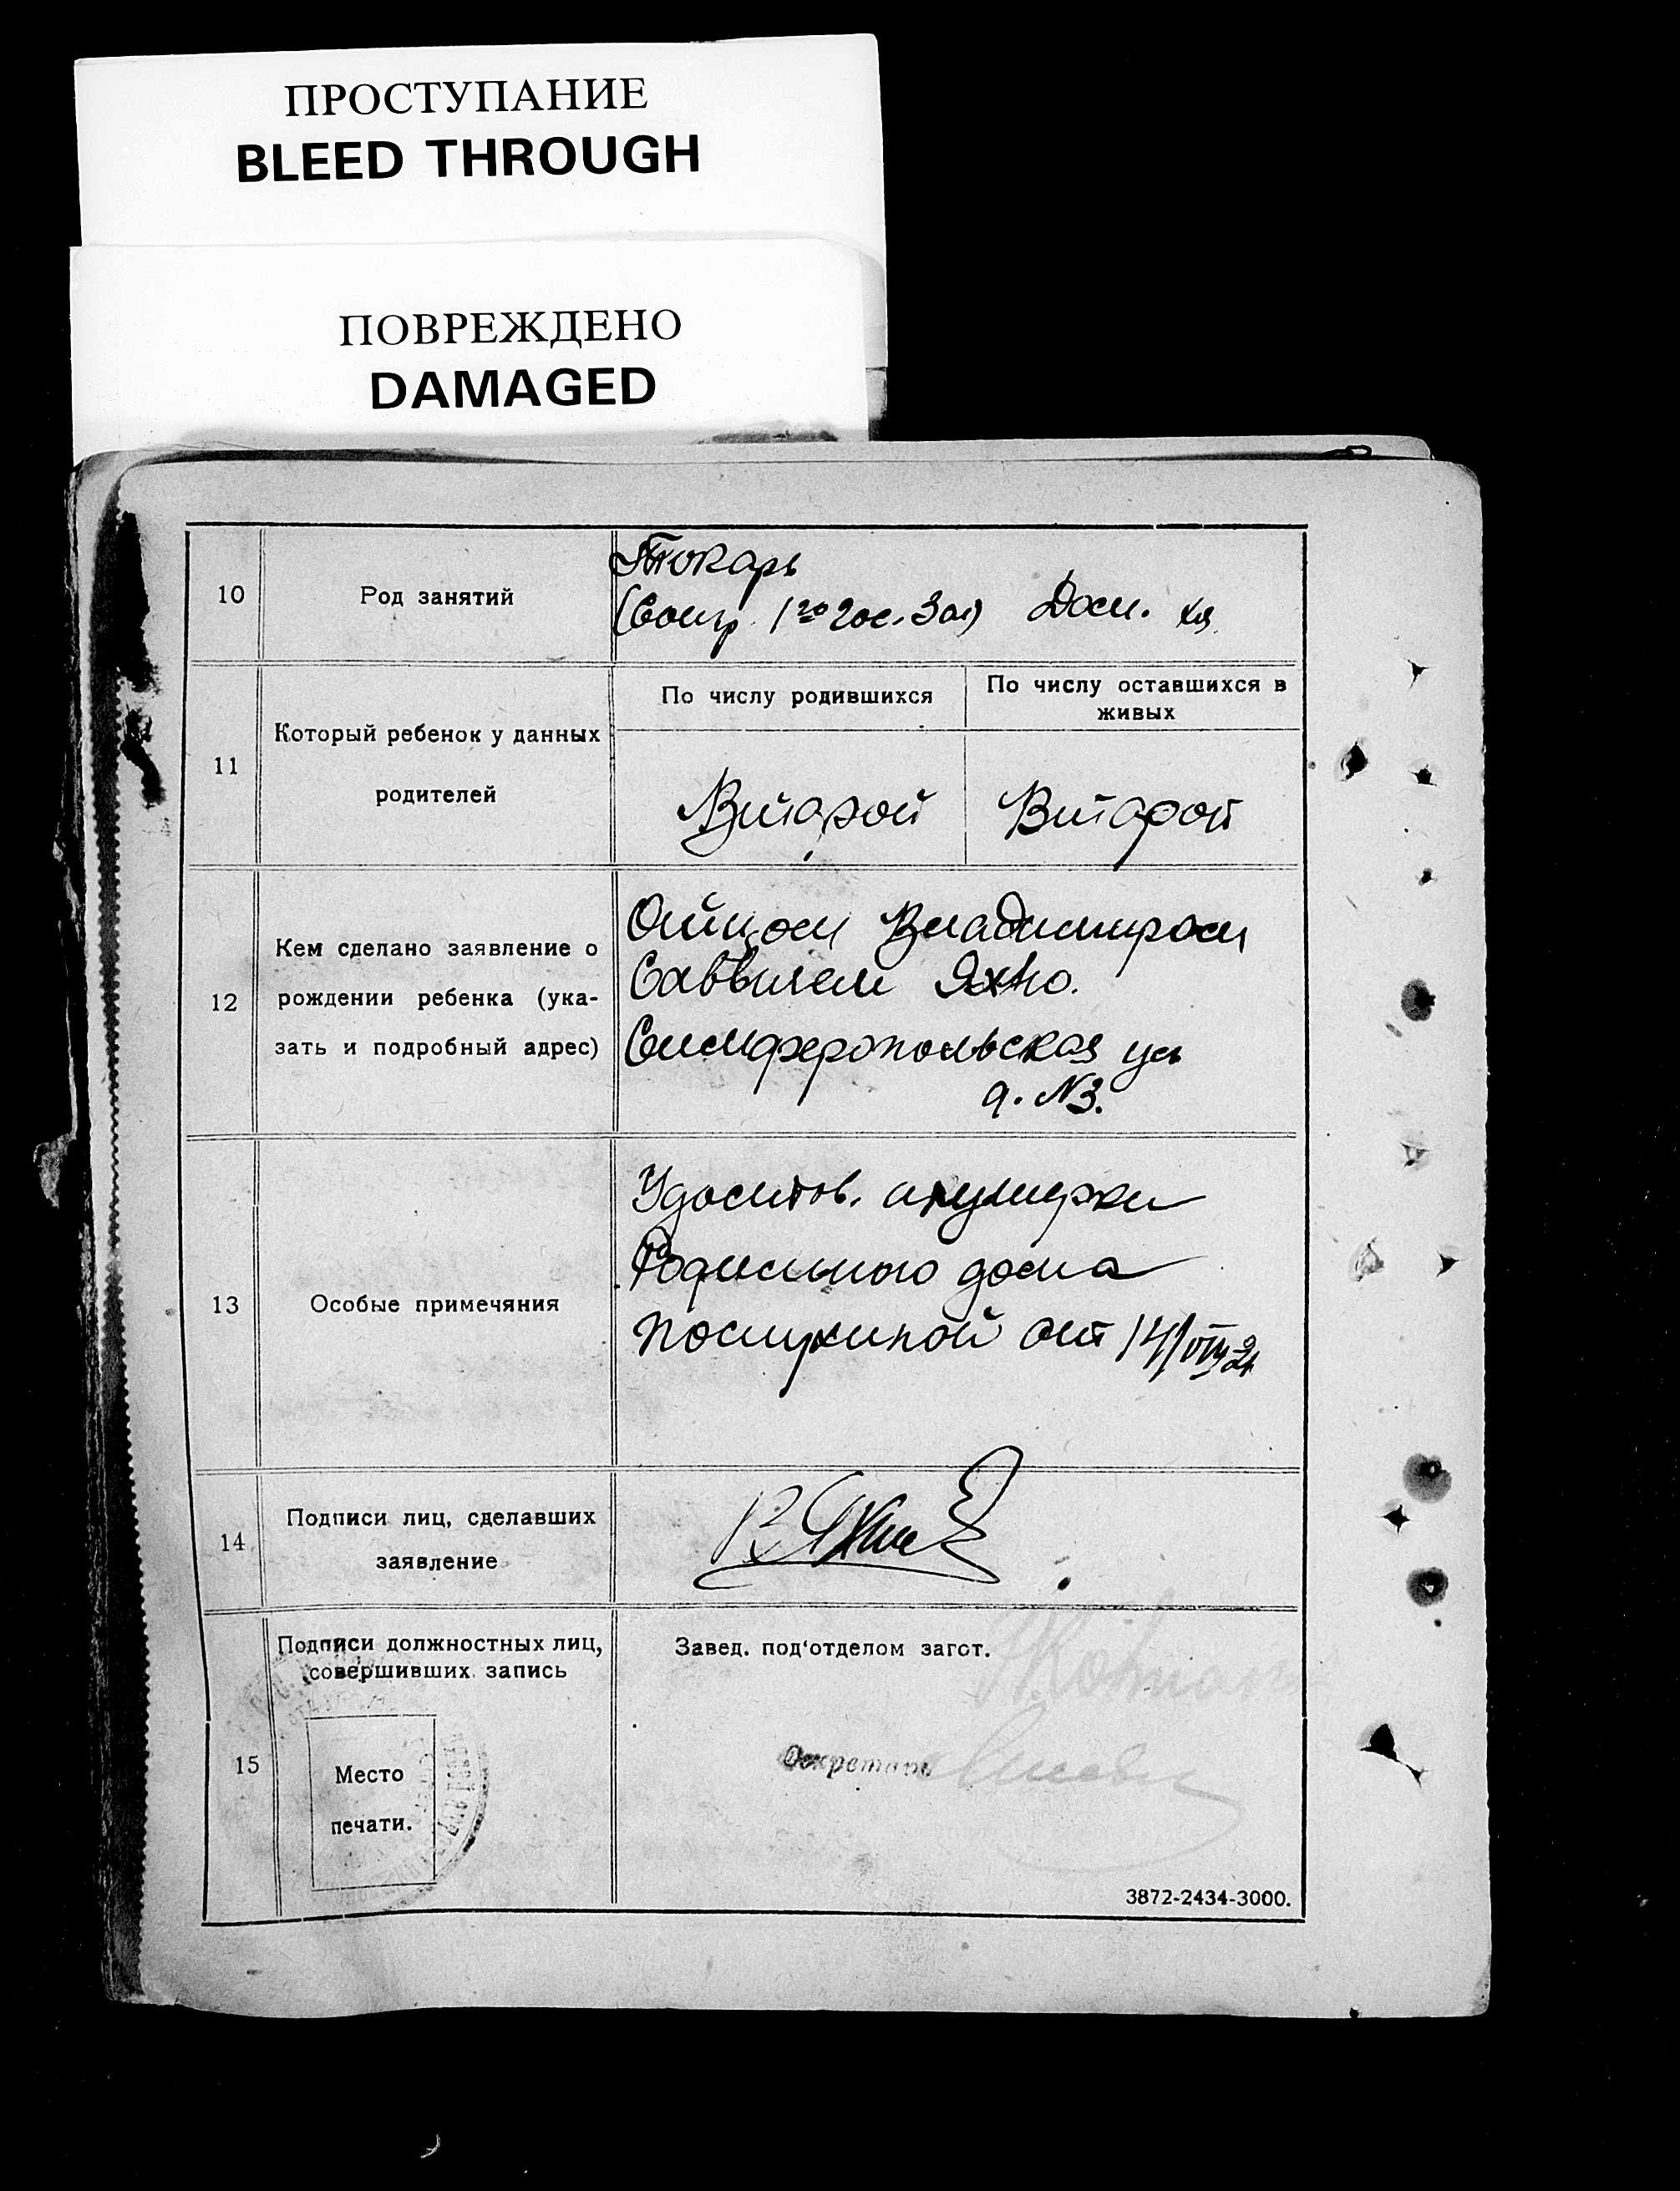 ПРОСТУПАНИЕ
BLEED THROUGH
ПОВРЕЖДЕНО
DAMAGED
10
Род занятий
Токарь
1го гос. Зав) Дом. хоз.
11
Который ребенок у данных
родителей
По числу родившихся
По числу оставшихся в
живых
Второй
Второй
12
Кем сделано заявление о
рождении ребенка (ука-
зать и подробный адрес)
Отцом Владимиром
Саввичем Яхно.
Симферопольская ул
д. №3.
13
Особые примечяния
Удостов. акушерки
Родильного дома
от 14/VIII 24
14
Подписи лиц, сделавших
заявление
В Яхно
15
Подписи должностных лиц,
совершивших запись
Место
печати.
Завед. под‘отделом загст.
Секретарь
3872-2434-3000.